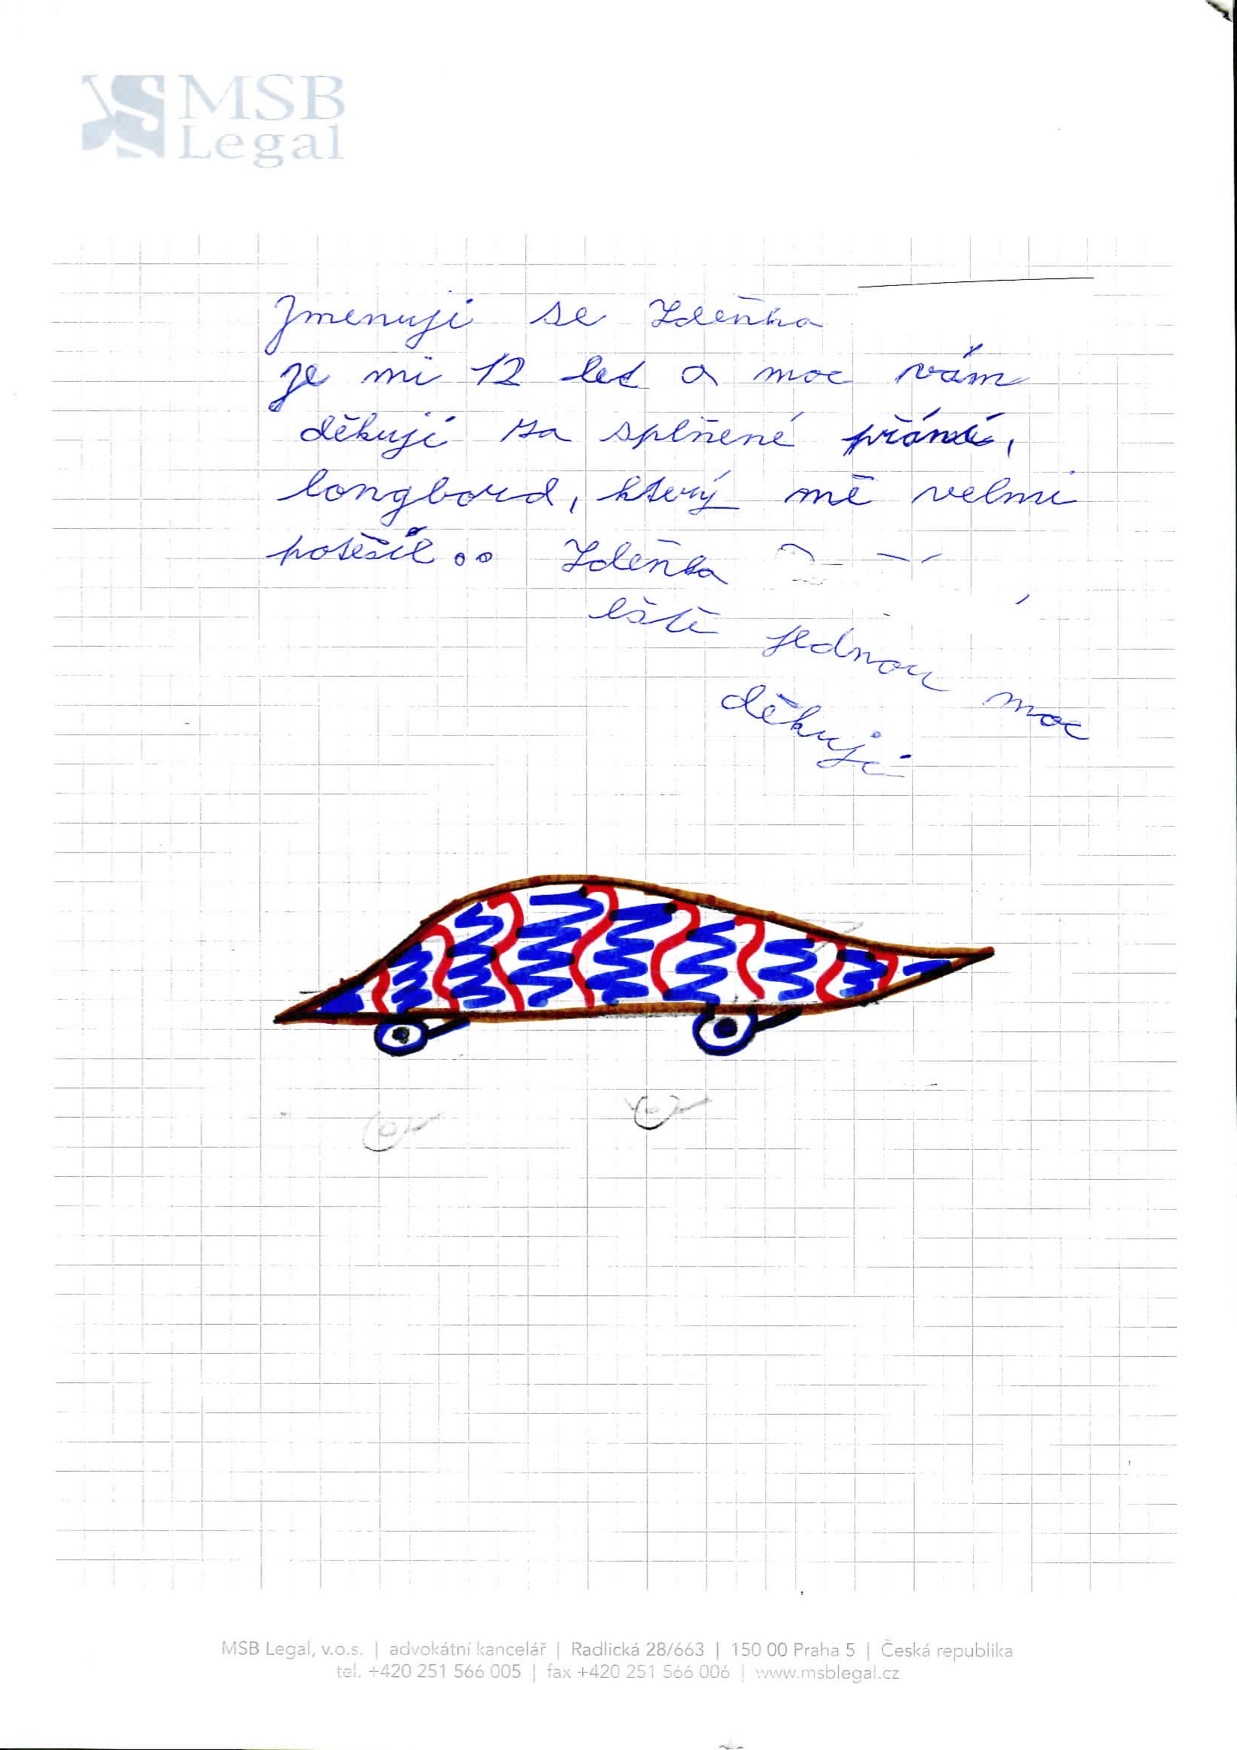 MSB
Legal
Jmenuji se Zdeňka
je mi 12 let a moc vám
děkuji za splněné přání,
longbord, který mě velmi
potěšil.. Zdeňka
eště jednou moc
děkuji
MSB Legal, v.o.s. | advokátní kancelář | Radlická 28/663 | 150 00 Praha 5 | Česká republika
tel. +420 251 566 005 | fax +420 251 566 006 | www.msblegal.cz